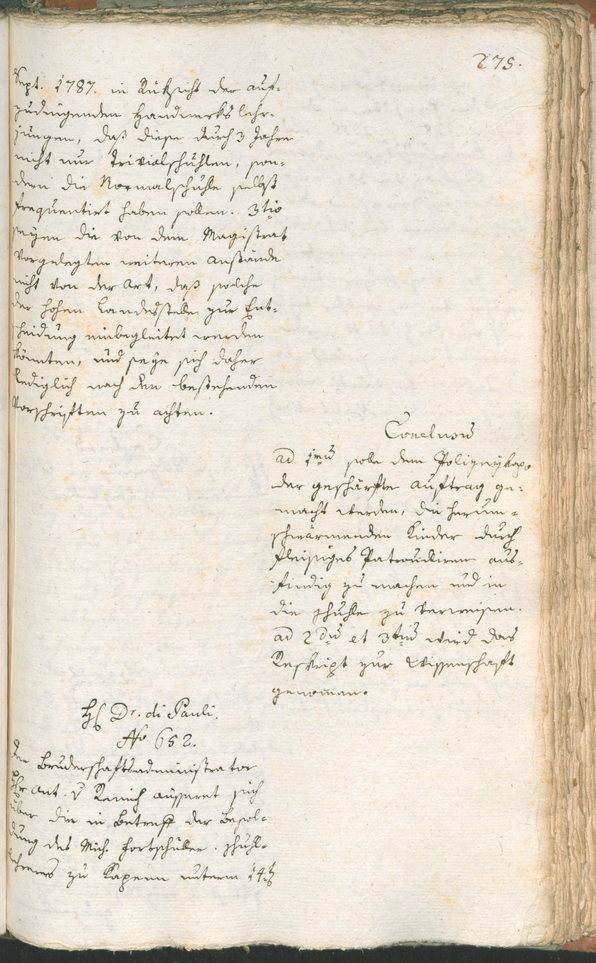 275.
Sept. 1787. in Rüksicht der auf-
zudingenden Handwerks lehr-
jungen, daß diese durch 3 Jahre
nicht nur Trivialschuhlen, son-
dern die Normalschuhle selbst
frequentirt haben sollen. 3tio
seyen die von dem Magistrat
vorgelegten weiteren Anstände
nicht von der Art, daß solche
der hohen Landesstelle zur Ent-
scheidung einbegleitet werden
könnten, und seye sich daher
lediglich nach den bestehenden
Vorschriften zu achten.
Conclusum
ad 1mum solle dem
der geschärfte Auftrag ge-
macht werden, die herum-
schwärmenden Kinder durch
fleissiges Patroulliren aus-
findig zu machen und in
die Schuhle zu verweisen.
ad 2dum et 3tium wird das
Reskript zur Wissenschaft
genommen.
H. Dr. di Pauli.
No 652.
Der Bruderschaftsadministrator
Hr Ant. v äusseret sich
über die in Betreff der Besol-
dung des Mich. Schuhl-
lehrers zu unterm 14t